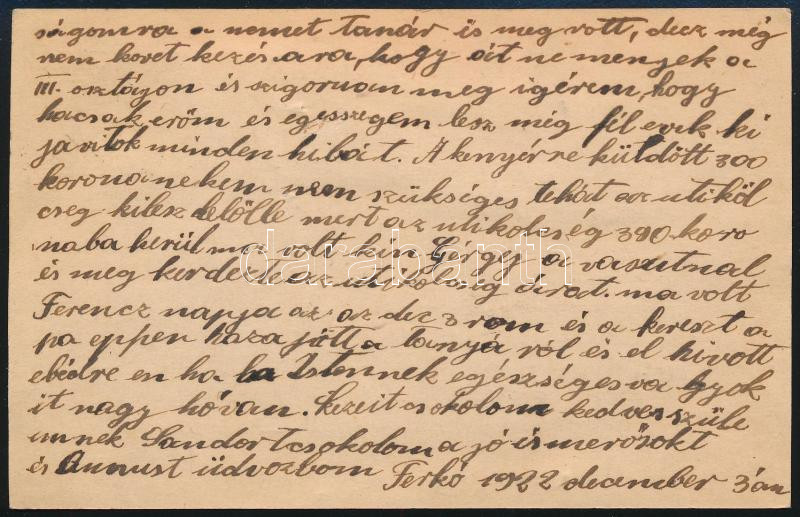 ságomra a nemet tanár is meg vott, decz még
nem koret kezés ara, hogy őit ne menyek a
III. osztáyon és szigoruan meg igérem, hogy
hacsak erőm és egesszegem lesz még fél evik ki
javitok minden hibát. A kenyérre küldött 300
korona nekem nem szükséges tehát az utiköl
cseg kilesz belőlle mert az utikolcség 390 koro
naba kerül ma volt kin Görgy a vasutnal
és meg kerdezte az utikolcség árat. ma volt
Ferencz napja az az decz 3 rom és a kereszt a
pa eppen haza jött a tanyá ról és el hivott
ebédre en ha la Istennek egészséges va gyok
it nagy hóvan. Kezeit csokolom kedves szüle
imnek Sandort csokolom a jó ismerősokt
és Annust üdvozbom Ferkó 1922 december 3án
darabanth